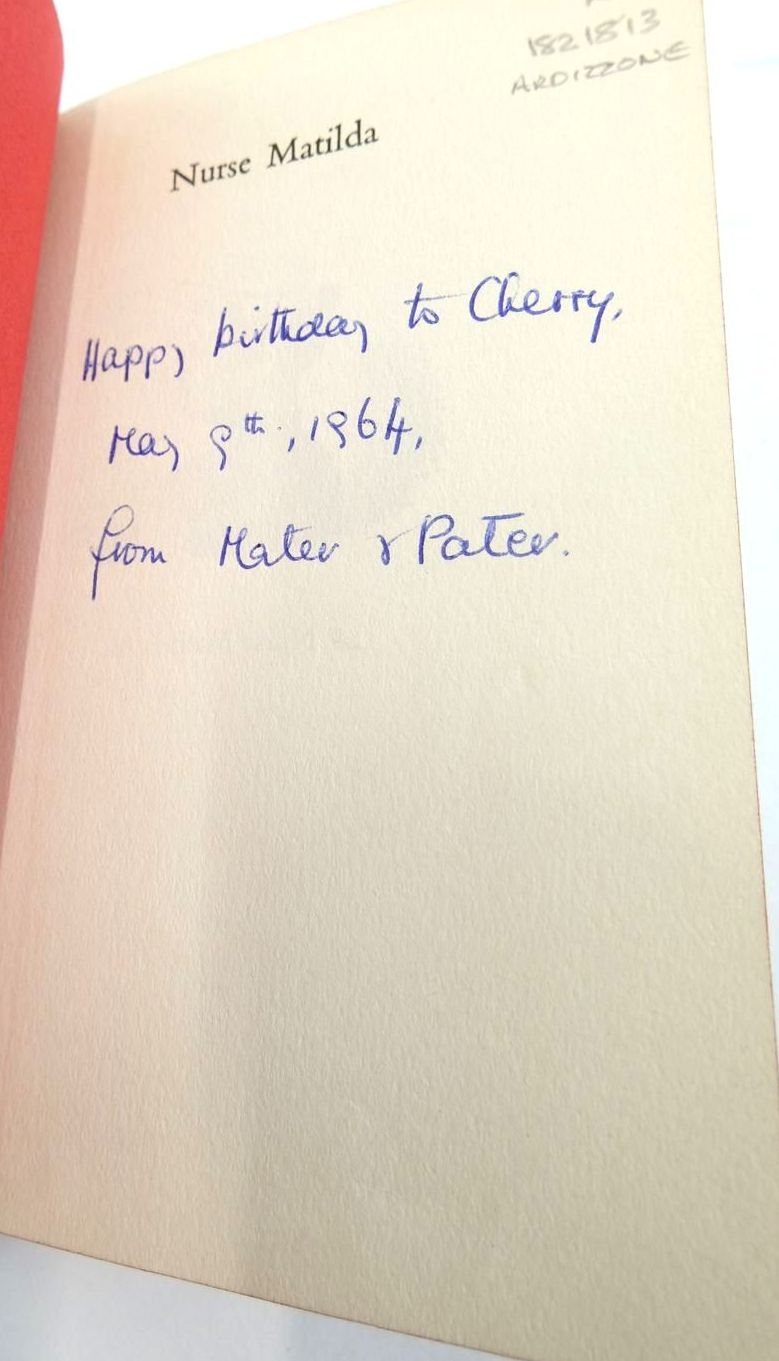 1821813
ARDIZZONE
Nurse Matilda
Happy birthday to Cherry,
May 9th., 1964,
from Mater & Pater.